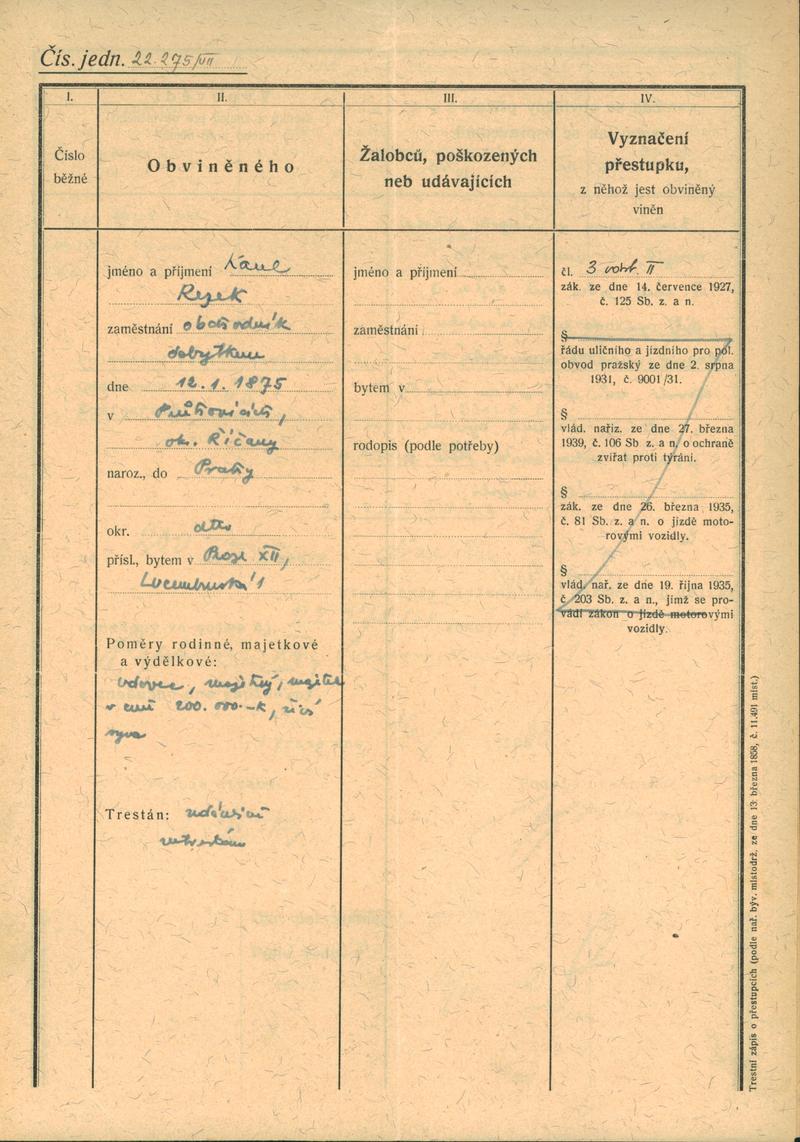 Čís. jedn. 22.275/VII
I.
Číslo
běžné
II.
Obviněného
III.
Žalobců, poškozených
neb udávajících
IV.
Vyznačení
přestupku,
z něhož jest obviněný
viněn
jméno a příjmení Karel
Rezek
zaměstnání obchodník
dobytkem
dne 12.1.1875
v
ok. Říčany
naroz., do Prahy
okr. dtto
přísl., bytem v Praze XII,
Lucemburská 1
Poměry rodinné, majetkové
a výdělkové:
vdovec, majetný,
v ceně 200.000.-K,
Trestán: údajně
netrestán
jméno a příjmení
zaměstnání
bytem v
rodopis (podle potřeby)
čl. 3 odst. II
zák. ze dne 14. července 1927,
č. 125 Sb. z. a n.
§
řádu uličního a jízdního pro pol.
obvod pražský ze dne 2. srpna
1931, č. 9001/31.
§
vlád. nařiz. ze dne 27. března
1939, č. 106 Sb z. a n. o ochraně
zvířat proti týrání.
§
zák. ze dne 26. března 1935,
č. 81 Sb. z. a n. o jízdě moto-
rovými vozidly.
§
vlád. nař. ze dne 19. října 1935,
č. 203 Sb. z. a n., jímž se pro-
vádí zákon o jízdě motorovými
vozidly.
Trestní zápis o přestupcích (podle nař. býv. místodrž. ze dne 13. března 1858, č. 11.491 míst.)